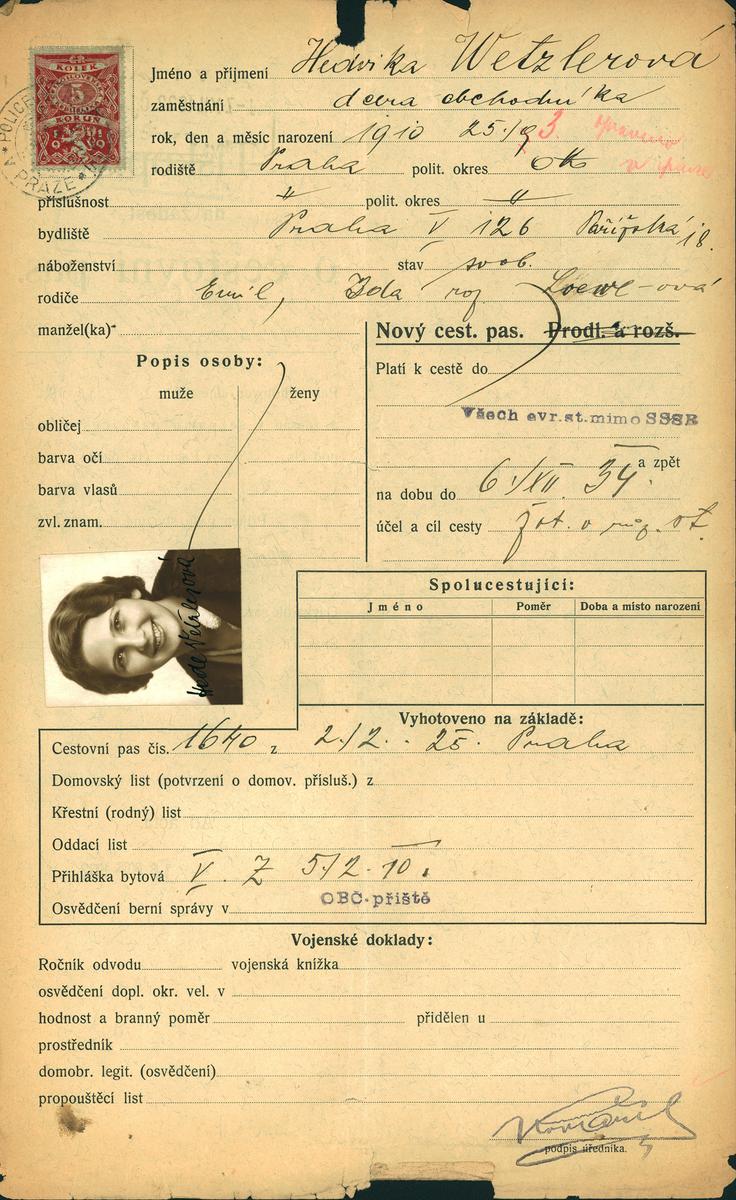 ČR
KOLEK
5
KORUN
1919
POLICEJ
V PRAZE
Jméno a příjmení Hedvika Wetzlerová
zaměstnání dcera obchodníka
rok, den a měsíc narození 1910 25./ 3.
rodiště Praha polit. okres
příslušnost " polit. okres "
bydliště Praha V 126 Pařížská 18.
náboženství stav svob.
rodiče Emil, Ida roz. Loewe-ová
manžel(ka)
Nový cest. pas. Prodl. a rozš.
Popis osoby:
muže ženy
obličej
barva očí
barva vlasů
zvl. znam.
Platí k cestě do
Všech evr. st. mimo SSSR
a zpět
na dobu do 6./XII. 34.
účel a cíl cesty
Hede Wetzlerová
Spolucestující:
Jméno Poměr Doba a místo narození
Vyhotoveno na základě:
Cestovní pas čís. 1640 z 2./2. 25. Praha
Domovský list (potvrzení o domov. přísluš.) z
Křestní (rodný) list
Oddací list
Přihláška bytová V. Z 5/2.10.
Osvědčení berní správy v OBČ. příště
Vojenské doklady:
Ročník odvodu vojenská knížka
osvědčení dopl. okr. vel. v
hodnost a branný poměr přidělen u
prostředník
domobr. legit. (osvědčení)
propouštěcí list
podpis úředníka.